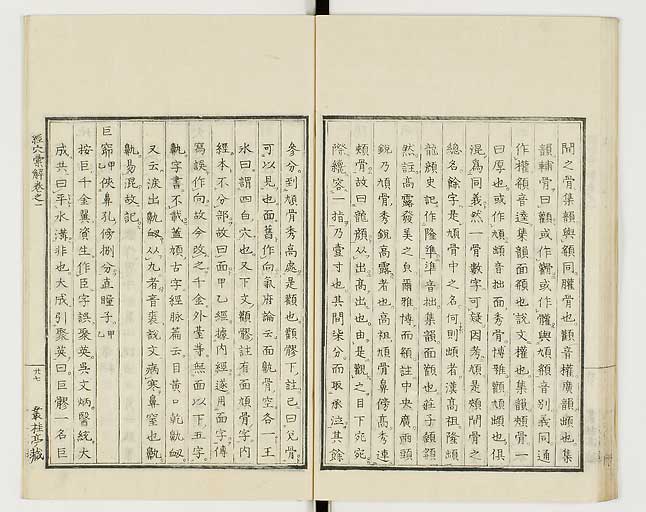 間之骨集韻與額同䐜骨也顴音權廣韻䪼也集
韻輔骨曰顴或作䪼或作髖與頄額音別義同通
作權額音逵集韻面額也説文權也集韻頰骨一
曰厚也或作頄䪼音拙面秀骨博雅顴頄䪼也俱
混爲同義然一骨數字可疑因考頄是頰間骨之
總名餘字是頄骨中之名何則䪼者漢高祖隆䪼
龍顏史記作隆準準音拙集韻面顴也莊子額額
然註高露發美之皃爾雅博而額註中央廣兩頭
鋭乃頄骨秀鋭高露者也高祖頄骨鼻傍高秀連
頰骨故曰龍顏以出高出也由是觀之目下宛宛
際纔容一指乃壹寸也其間柒分而取承泣其餘
參分到頄骨秀高處是顴也顴髎下註已曰兌骨
可以見也面舊作向氣府論云面鼽骨空各一王
氷曰謂四白穴也又下文顴髎註有面頄骨字内
經本不分部故曰面甲乙經據内經遂用面字傳
寫誤作向故今改之千金外臺等無面以下五字
鼽字書不載蓋頄古字經脉篇云目黄口乾鼽衂
又云涙出鼽衂从九者音裘説文病寒鼻窒也鼽
鼽易混故記
巨窌甲乙俠鼻孔傍捌分直瞳子甲乙
按巨千金翼資生作臣字誤聚英呉文炳醫統大
成共曰平水溝非也大成引聚英曰巨髎一名巨
經穴彙解卷之一
廿七
叢桂亭藏